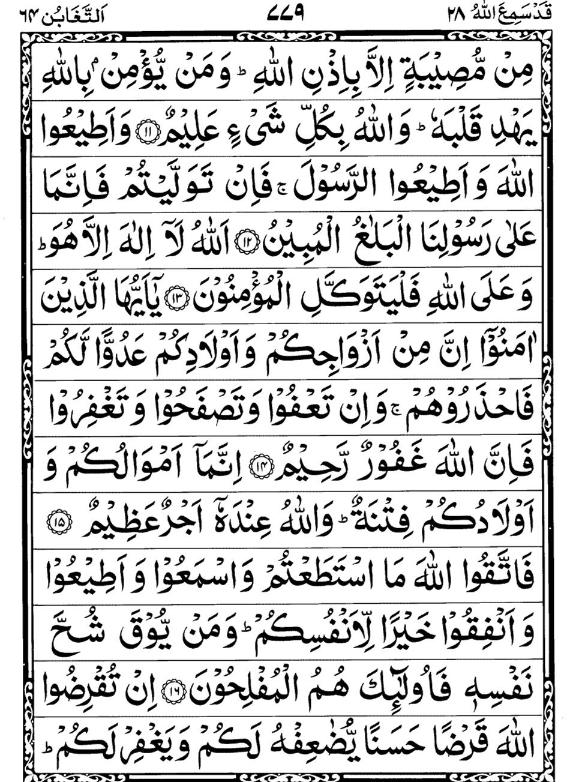 قَدْ سَمِعَ اللهُ ٢٨ ٧٧٩ اَلتَّغَابُن ٦٤
مِنْ مُّصِيْبَةٍ اِلَّا بِاِذْنِ اللهِ ؕ وَمَنْ يُّؤْمِنْۢ بِاللهِ
يَهْدِ قَلْبَهٗ ؕ وَاللهُ بِكُلِّ شَيْءٍ عَلِيْمٌ ﴿١١﴾ وَاَطِيْعُوا
اللهَ وَاَطِيْعُوا الرَّسُوْلَ ۚ فَاِنْ تَوَلَّيْتُمْ فَاِنَّمَا
عَلٰى رَسُوْلِنَا الْبَلٰغُ الْمُبِيْنُ ﴿١٢﴾ اَللهُ لَاۤ اِلٰهَ اِلَّا هُوَ ؕ
وَعَلَى اللهِ فَلْيَتَوَكَّلِ الْمُؤْمِنُوْنَ ﴿١٣﴾ يٰۤاَيُّهَا الَّذِيْنَ
اٰمَنُوْۤا اِنَّ مِنْ اَزْوَاجِكُمْ وَاَوْلَادِكُمْ عَدُوًّا لَّكُمْ
فَاحْذَرُوْهُمْ ۚ وَاِنْ تَعْفُوْا وَتَصْفَحُوْا وَتَغْفِرُوْا
فَاِنَّ اللهَ غَفُوْرٌ رَّحِيْمٌ ﴿١٤﴾ اِنَّمَاۤ اَمْوَالُكُمْ وَ
اَوْلَادُكُمْ فِتْنَةٌ ؕ وَاللهُ عِنْدَهٗۤ اَجْرٌ عَظِيْمٌ ﴿١٥﴾
فَاتَّقُوا اللهَ مَا اسْتَطَعْتُمْ وَاسْمَعُوْا وَاَطِيْعُوْا
وَاَنْفِقُوْا خَيْرًا لِّاَنْفُسِكُمْ ؕ وَمَنْ يُّوْقَ شُحَّ
نَفْسِهٖ فَاُولٰٓئِكَ هُمُ الْمُفْلِحُوْنَ ﴿١٦﴾ اِنْ تُقْرِضُوا
اللهَ قَرْضًا حَسَنًا يُّضٰعِفْهُ لَكُمْ وَيَغْفِرْ لَكُمْ ؕ